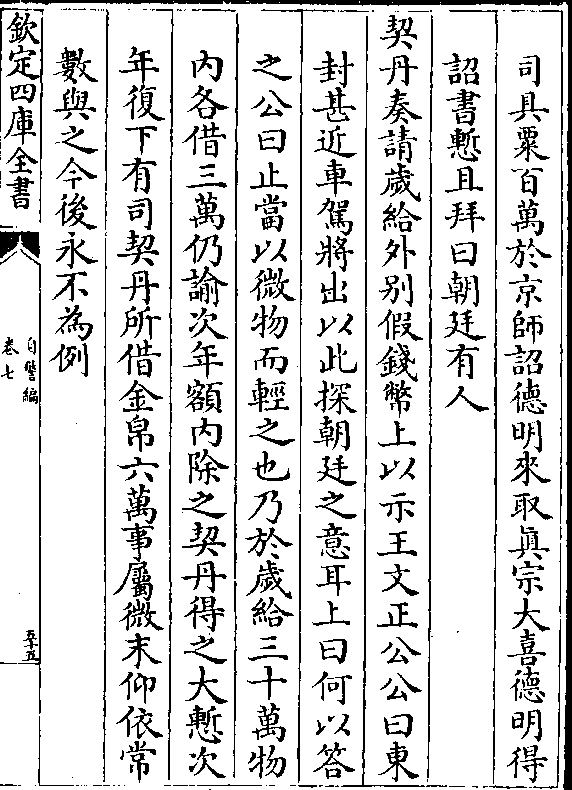 司具粟百萬於京師詔德明來取眞宗大喜德明得
詔書慙且拜曰朝廷有人
契丹奏請歲給外别假錢幣上以示王文正公公曰東
封甚近車駕將出以此探朝廷之意耳上曰何以答
之公曰止當以微物而輕之也乃於歲給三十萬物
内各借三萬仍諭次年額内除之契丹得之大慙次
年復下有司契丹所借金帛六萬事屬微末仰依常
數與之今後永不為例
欽定四庫全書
自警編
卷七
五十五